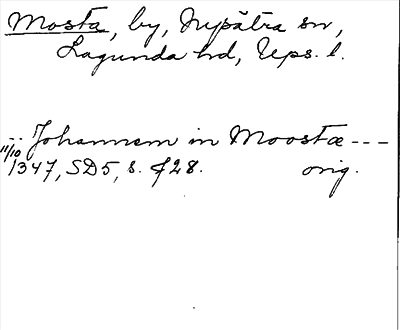 Mosta, by, Nysätra sn,
Lagunda hd, Ups. l.
-- Johannem in Moostæ ---
11/10 1347, SD5, s. 728. orig.